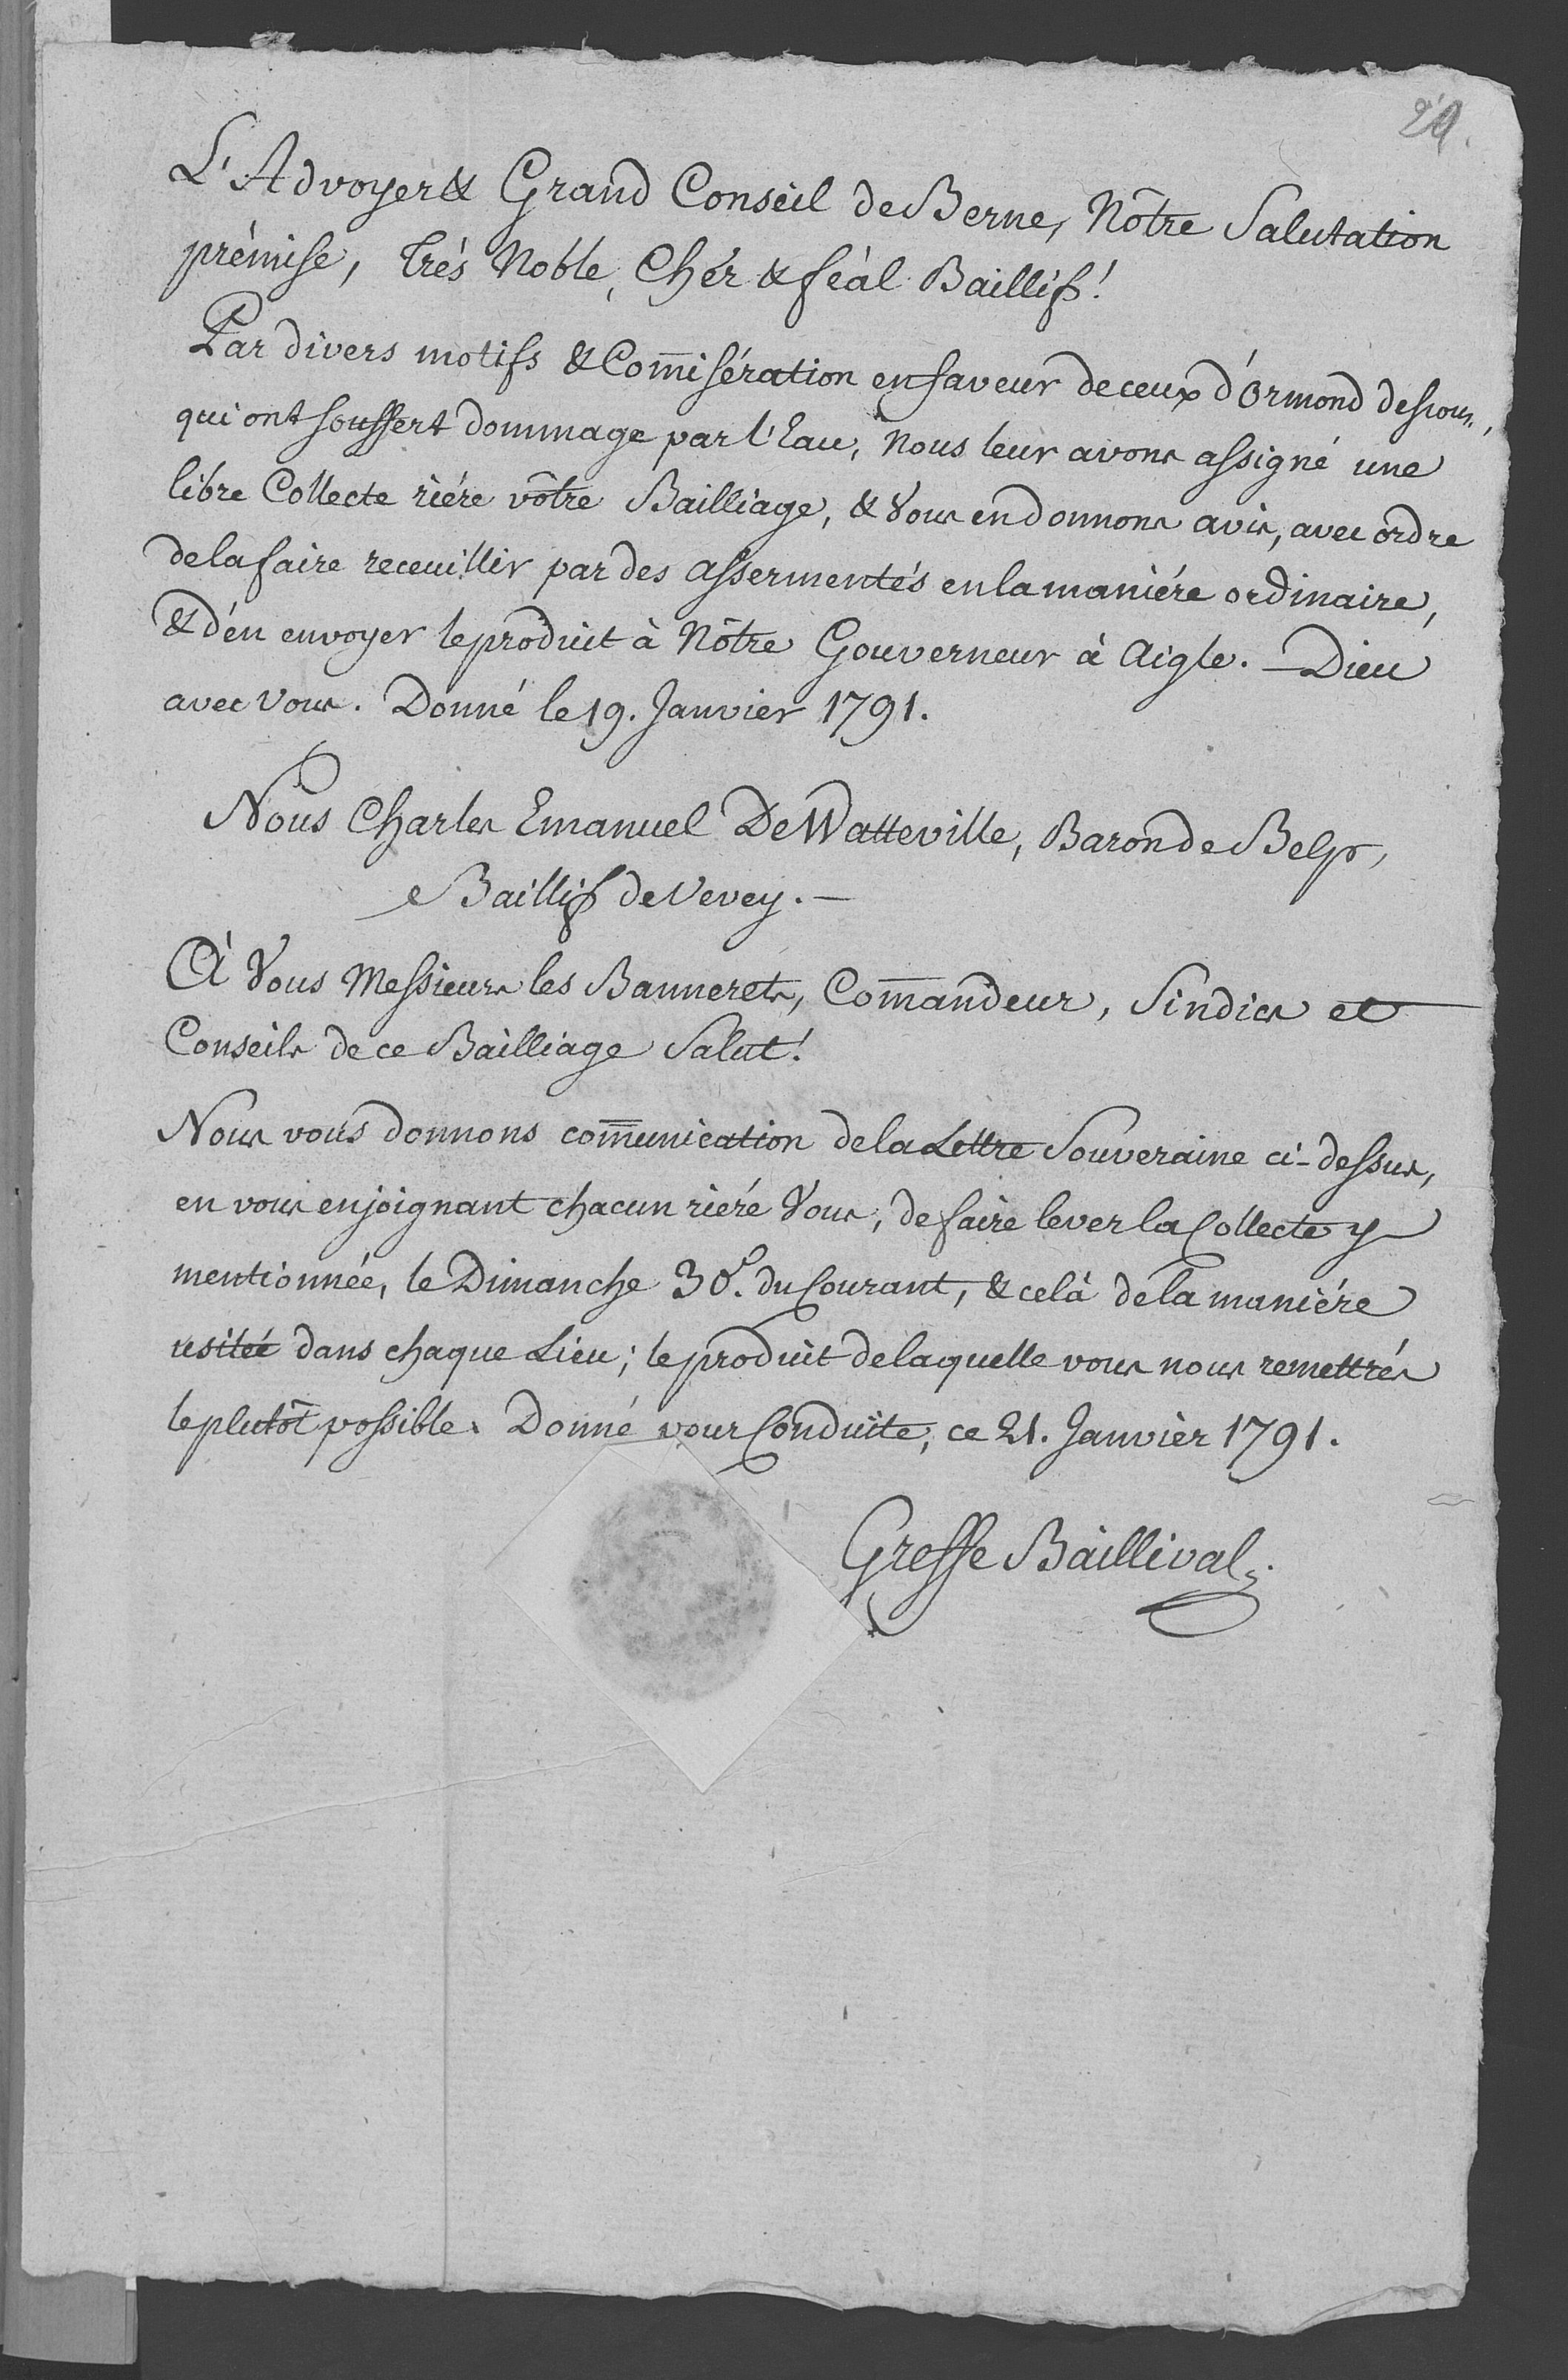 29.
L'Advoyer & Grand Conseil de Berne, Nôtre Salutation
prémise, Trés Noble, Chér & féal Baillif!
Par divers motifs & Com̄isération en faveur de ceux d'Ormond dessous,
qui ont souffert dommage par l'Eau, Nous leur avons assigné une
libre Collecte riére vôtre Bailliage, & Vous en donnons avis, avec ordre
de la faire receuillir par des assermentés en la maniére ordinaire,
& d'en envoyer le produit à Nôtre Gouverneur à Aigle. — Dieu
avec Vous. Donné le 19. Janvier 1791.
Nous Charles Emanuel De Watteville, Baron de Belp,
Baillif de Vevey. —
À Vous Messieurs les Bannerets, Com̄andeur, Sindics et
Conseils de ce Bailliage Salut!
Nous vous donnons com̄unication de la Lettre Souveraine ci-dessus,
en vous enjoignant chacun riére Vous, de faire lever la Collecte y
mentionnée, le Dimanche 30e. du Courant, & celà de la maniére
usitée dans chaque Lieu; le produit de laquelle vous nous remettrés
le plutôt possible. Donné pour Conduite, ce 21. Janvier 1791.
Greffe Baillival.